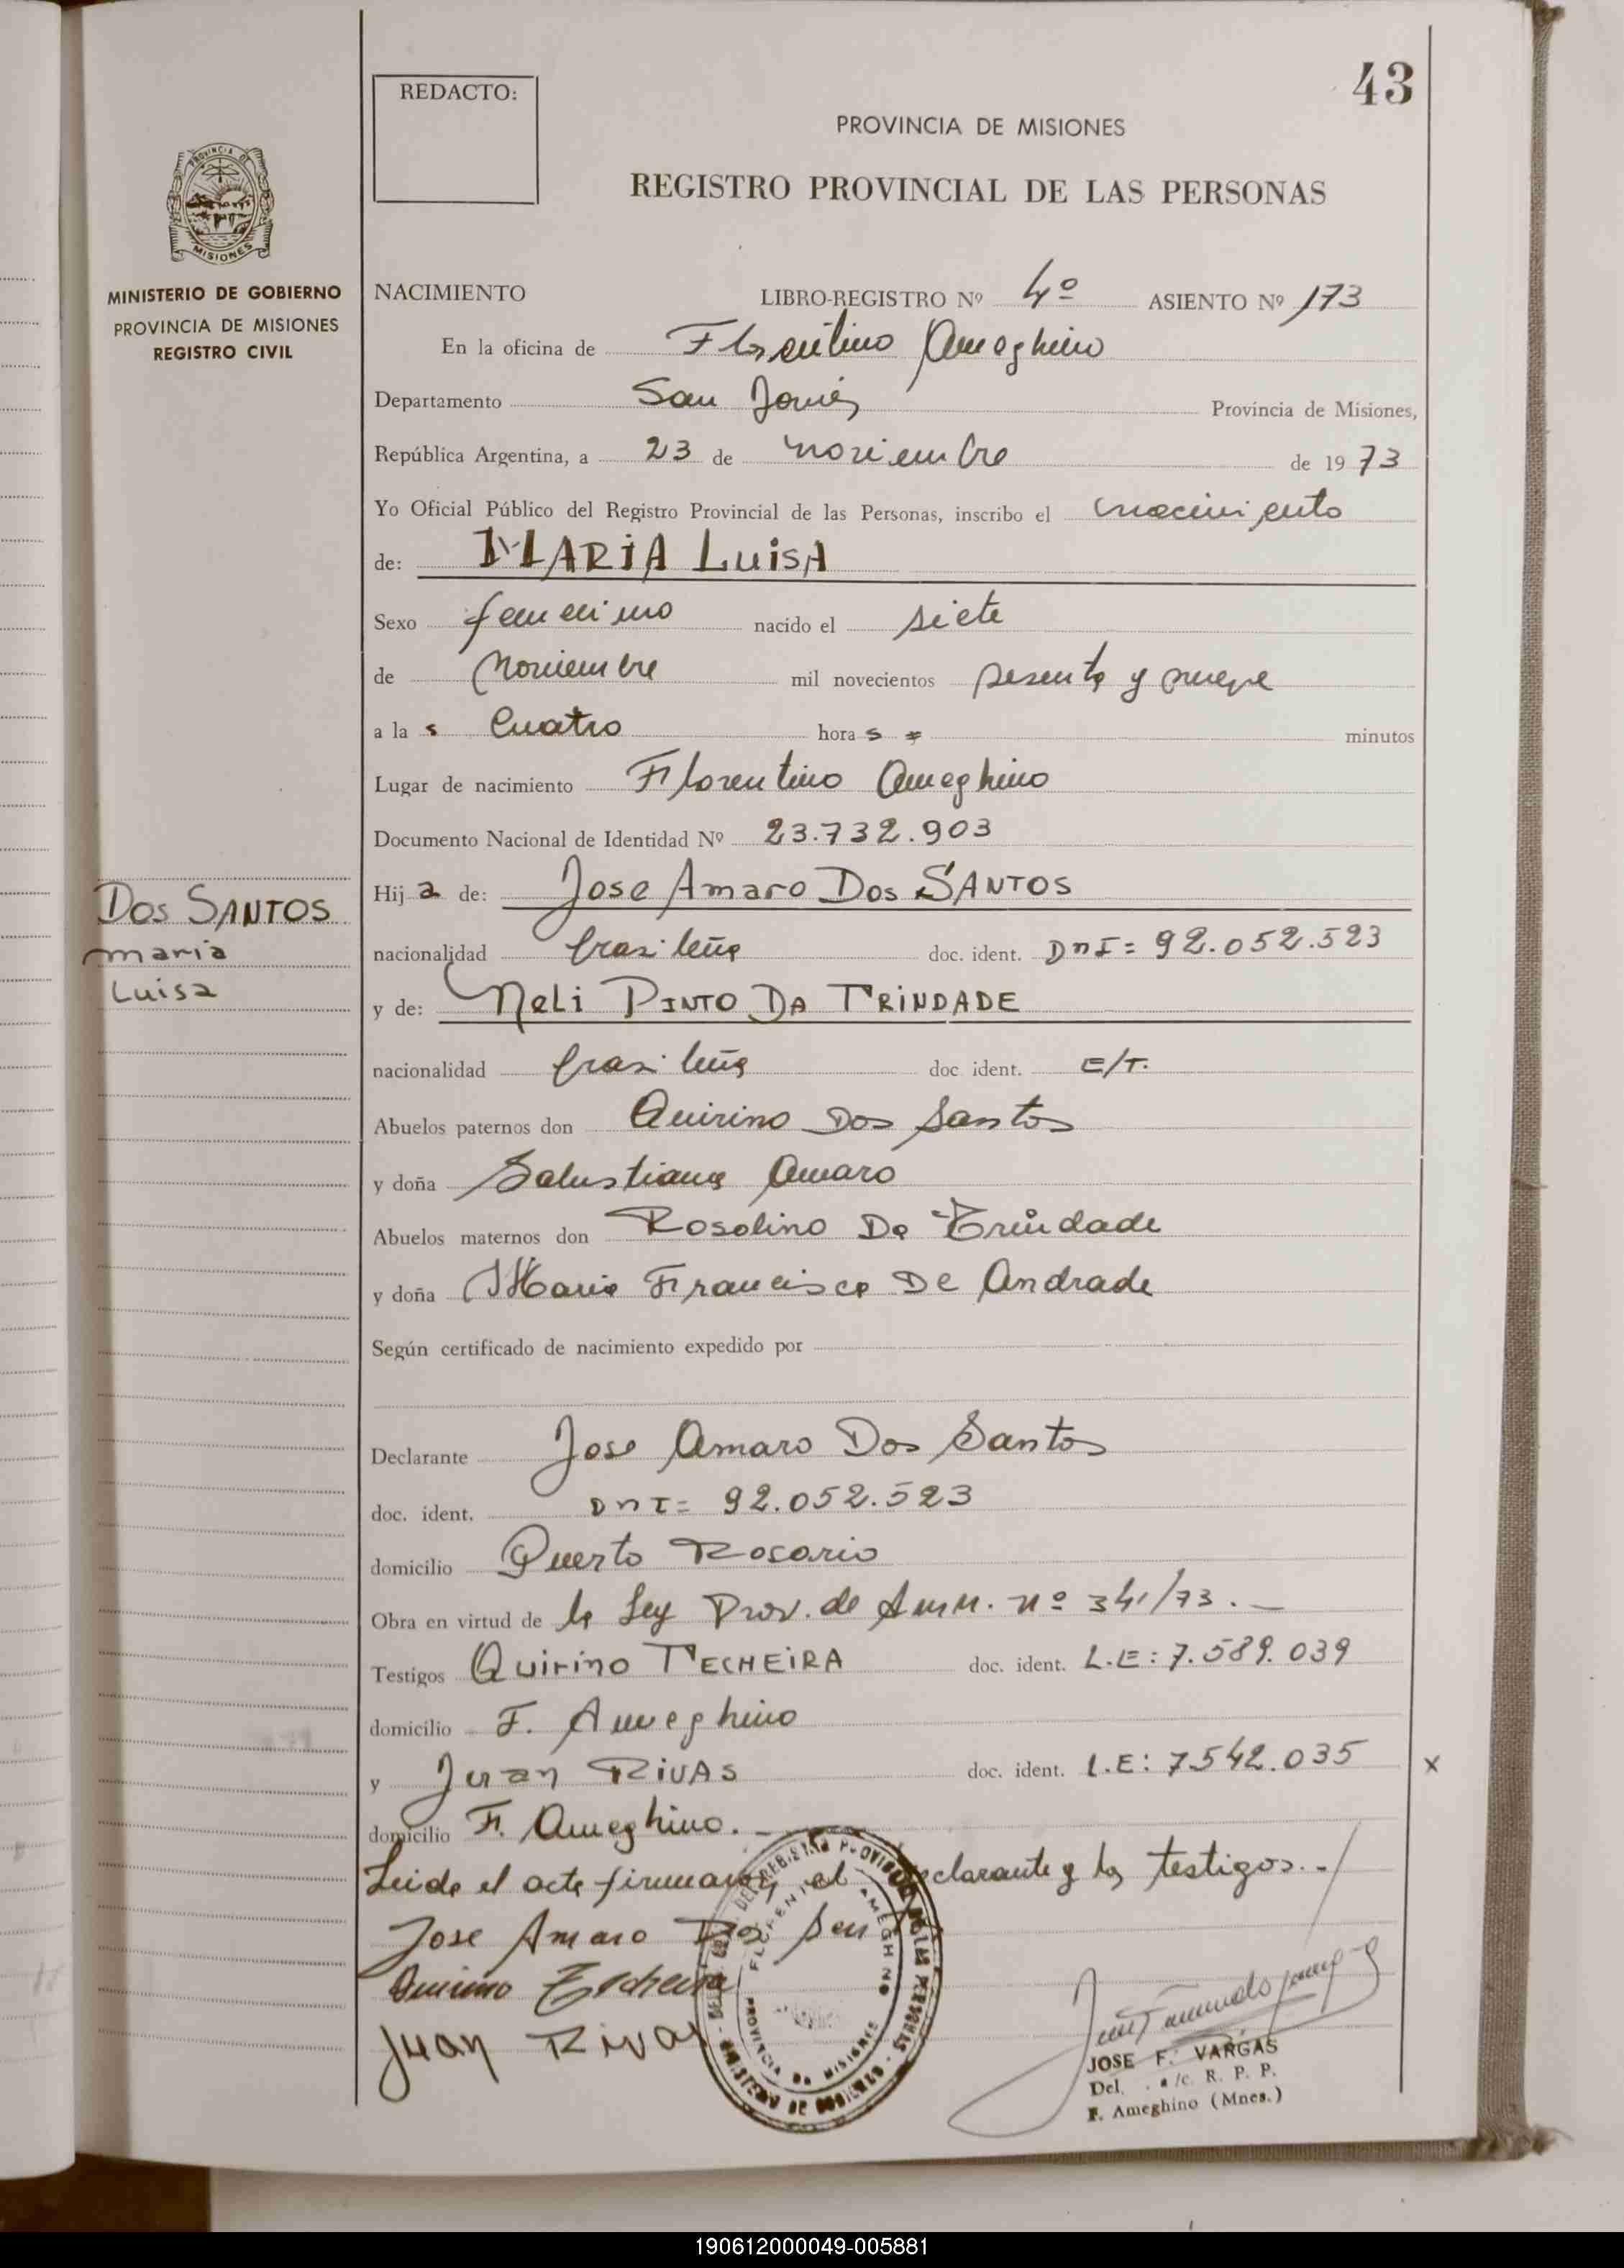 43
REDACTO:
PROVINCIA DE MISIONES
REGISTRO PROVINCIAL DE LAS PERSONAS
PROVINCIA DE
MISIONES
MINISTERIO DE GOBIERNO
PROVINCIA DE MISIONES
REGISTRO CIVIL
NACIMIENTO LIBRO-REGISTRO Nº 4º ASIENTO Nº 173
En la oficina de Florentino Ameghino
Departamento San Javier Provincia de Misiones,
República Argentina, a 23 de noviembre de 1973
Yo Oficial Público del Registro Provincial de las Personas, inscribo el nacimiento
de: MARIA LUISA
Sexo femenino nacido el siete
de Noviembre mil novecientos sesenta y nueve
a la s Cuatro hora s minutos
Lugar de nacimiento Florentino Ameghino
Documento Nacional de Identidad Nº 23.732.903
DOS SANTOS
Maria
Luisa
Hij a de: Jose Amaro Dos SANTOS
nacionalidad brasileña doc. ident. DNI= 92.052.523
y de: Neli PINTO DA TRINDADE
nacionalidad brasileña doc ident. E/T.
Abuelos paternos don Quirino Dos Santos
y doña Salustiana Amaro
Abuelos maternos don Rosolino Da Trindade
y doña Maria Francisca De Andrade
Según certificado de nacimiento expedido por
Declarante Jose Amaro Dos Santos
doc. ident. DNI= 92.052.523
domicilio Puerto Rosario
Obra en virtud de la Ley Prov. de Amn. nº 341/73.-
Testigos Quirino TECHEIRA doc. ident. L.E: 7.589.039
domicilio F. Ameghino
y Juan RIVAS doc. ident. L.E: 7542.035 x
domicilio F. Ameghino.-
Leida el acta firmaron el declarante y los testigos.-/
Jose Amaro Dos San
Quirino Techeira
Juan Rivas
FLORENTINO AMEGHINO
PROVINCIA DE MISIONES
JOSE F. VARGAS
Del. a/c. R. P. P.
F. Ameghino (Mnes.)
190612000049-005881